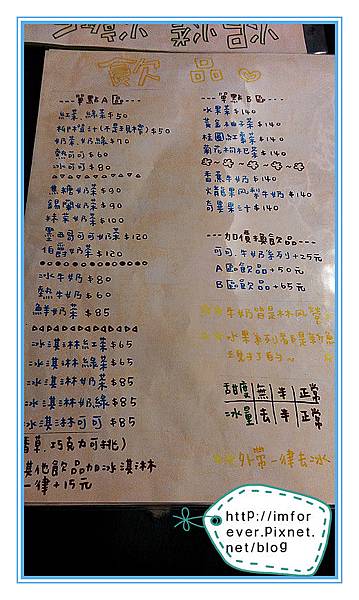 飲品
---單點A區---
紅茶.綠茶$50
柳橙汁(不是現榨)$50
奶茶.奶綠$70
熱可可$60
冰可可$80
焦糖奶茶$90
錫蘭奶茶$90
抹茶奶茶$100
墨西哥可可奶茶$120
伯爵奶茶$120
冰牛奶$80
熱牛奶$60
鮮奶茶$85
冰淇淋紅茶$65
冰淇淋綠茶$65
冰淇淋奶茶$85
冰淇淋奶綠$85
冰淇淋可可$85
香草.巧克力可挑)
其他飲品加冰淇淋
一律+15元
---單點B區---
水果茶$140
黃金柚子茶$140
桂圓紅棗茶$140
菊花枸杞茶$140
香蕉牛奶$140
火龍果鳳梨牛奶$140
奇異果汁$140
---加價換飲品---
可可.牛奶系列+25元
A區飲品+50元
B區飲品+65元
牛奶皆是林鳳營
水果系列都是新鮮
現打的~
甜度 無 半 正常
冰量 去 半 正常
外帶一律去冰
http://imfor
ever.pixnet.
net/blog